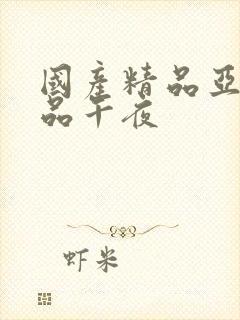 國產精品亞
品午夜
虾米